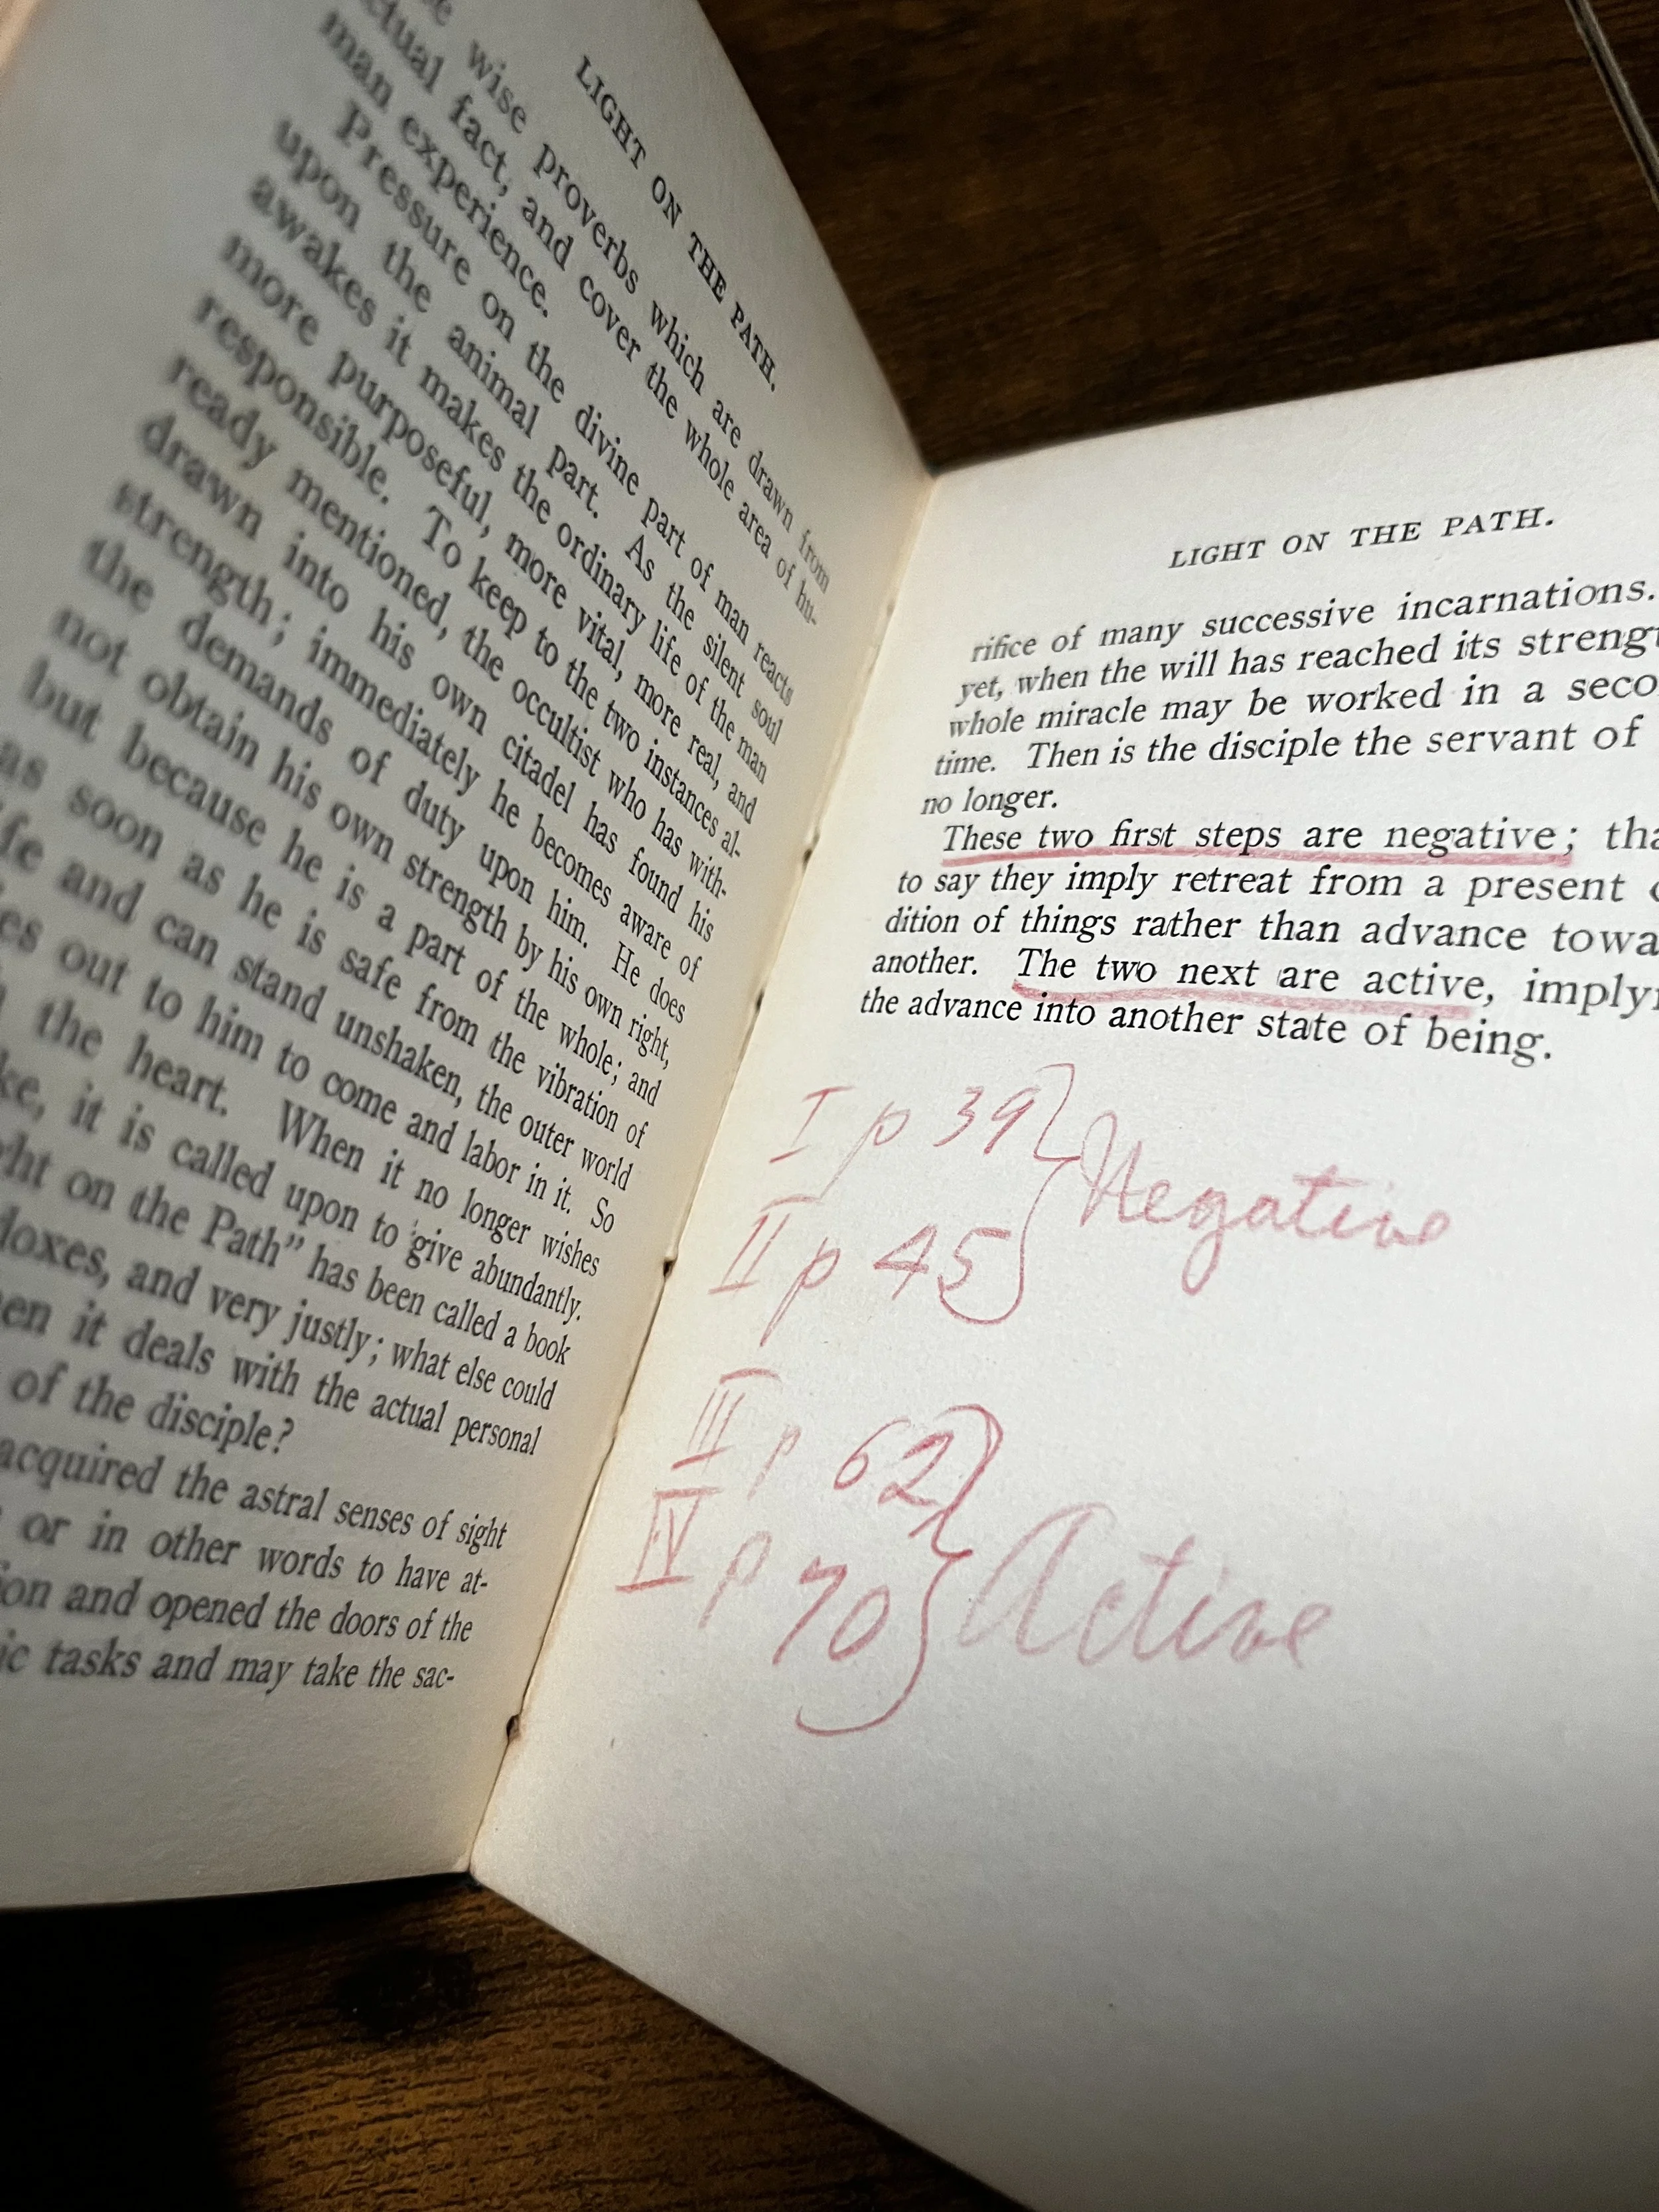 LIGHT ON THE PATH.
wise proverbs which are drawn from
fact, and cover the whole area of hu-
man experience.
Pressure on the divine part of man reacts
upon the animal part. As the silent soul
awakes it makes the ordinary life of the man
more purposeful, more vital, more real, and
responsible. To keep to the two instances al-
ready mentioned, the occultist who has with-
drawn into his own citadel has found his
strength; immediately he becomes aware of
the demands of duty upon him. He does
not obtain his own strength by his own right,
but because he is a part of the whole; and
as soon as he is safe from the vibration of
and can stand unshaken, the outer world
out to him to come and labor in it. So
the heart. When it no longer wishes
it is called upon to give abundantly.
on the Path” has been called a book
and very justly; what else could
it deals with the actual personal
of the disciple?
acquired the astral senses of sight
or in other words to have at-
and opened the doors of the
tasks and may take the sac-
LIGHT ON THE PATH.
rifice of many successive incarnations.
yet, when the will has reached its
whole miracle may be worked in a
time. Then is the disciple the servant of
no longer.
These two first steps are negative;
to say they imply retreat from a present
dition of things rather than advance
another. The two next are active,
the advance into another state of being.
I p 39 } Negative
II p 45
III p 62 } Active
IV p 70